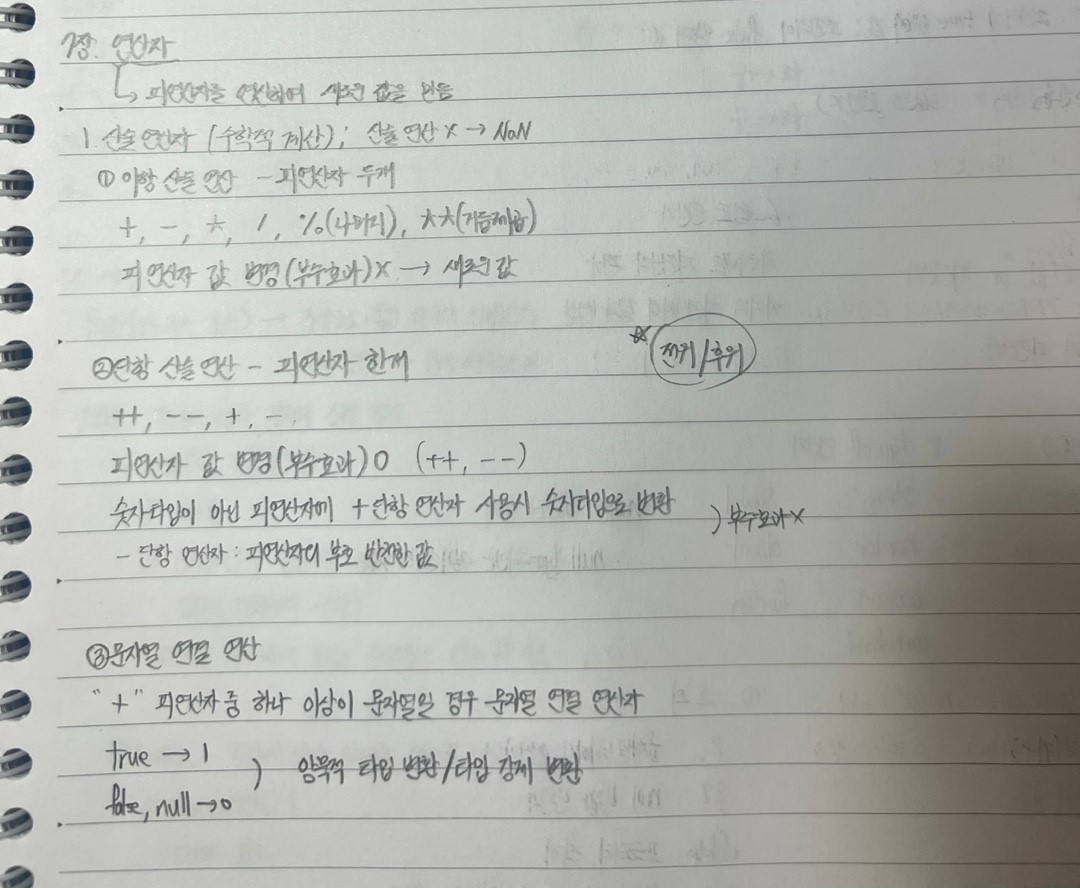 7장. 연산자
↳ 피연산자를 연산하여 새로운 값을 만듦
1. 산술 연산자 (수학적 계산); 산술 연산 X → NaN
① 이항 산술 연산 - 피연산자 두개
+, -, *, /, %(나머지), **(거듭제곱)
피연산자 값 변경(부수효과)X → 새로운 값
② 단항 산술 연산 - 피연산자 한개
☆ 전위/후위
++, --, +, -
피연산자 값 변경(부수효과)O (++, --)
숫자타입이 아닌 피연산자에 + 단항 연산자 사용시 숫자타입으로 변환
) 부수효과X
- 단항 연산자 : 피연산자의 부호 반전한 값
③ 문자열 연결 연산
"+" 피연산자 중 하나 이상이 문자열일 경우 문자열 연결 연산자
true → 1
) 암묵적 타입 변환/타입 강제 변환
false, null → 0